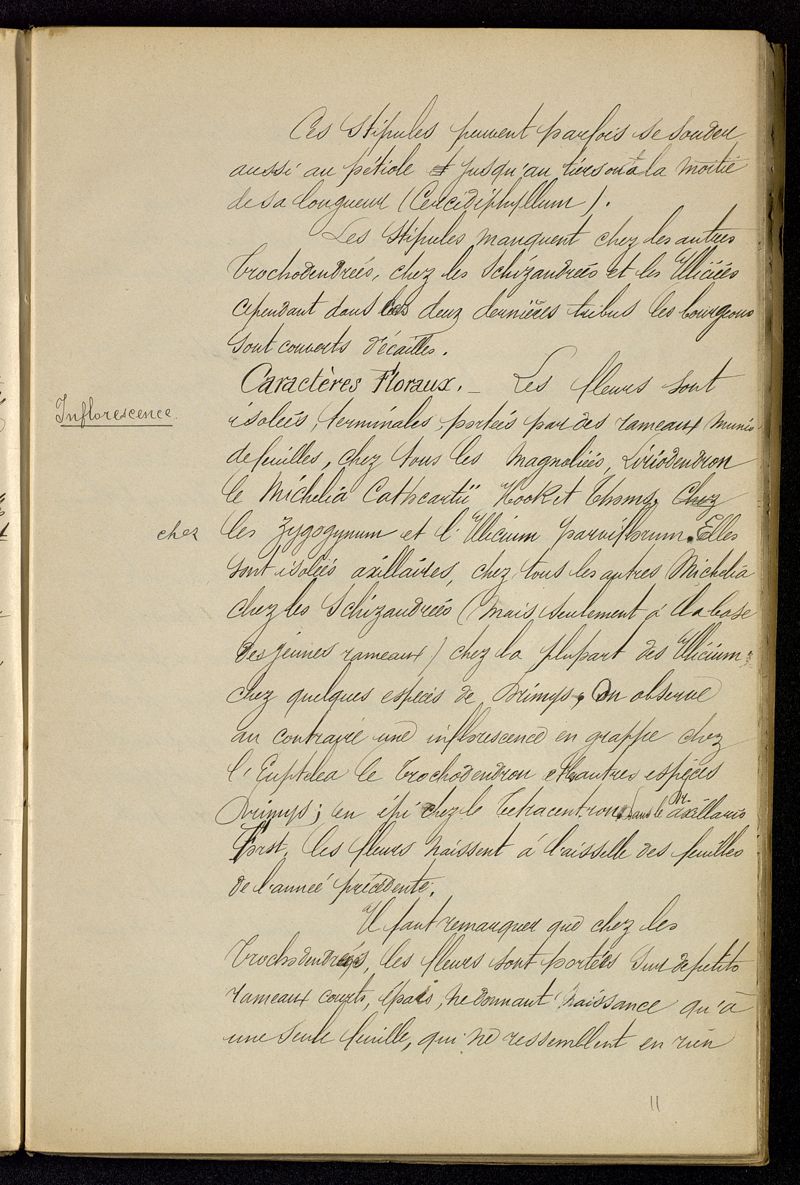 Ces Stipules peuvent parfois se souder
aussi au pétiole jusqu'au tiers ou à la moitié
de sa longueur (Cercidiphyllum).
Les Stipules manquent chez les autres
Trochodendrées, chez les Schizandrées et les Illiciées
cependant dans les deux dernières tribus les bourgeons
sont couverts d'écailles.
Caractères Floraux. _ Les fleurs sont
Inflorescence
isolées, terminales, portées par des rameaux munis
de feuilles, chez tous les Magnoliées, Liriodendron
le Michelia Cathcartii Hook et Thoms, Chez
chez
les Zygogynum et l'Illicium parviflorum. Elles
sont isolées axillaires, chez tous les autres Michelia
chez les Schizandrées (mais seulement à la base
des jeunes rameaux) chez la plupart des Illicium
chez quelques espèces de Drimys. On observe
au contraire une inflorescence en grappe chez
l'Euptelea le Trochodendron et les autres espèces
Drimys; en épi chez le Tetracentron. Dans le Dr. axillaris
Forst. les fleurs naissent à l'aisselle des feuilles
de l'année précédente.
Il faut remarquer que chez les
Trochodendrées, les fleurs sont portées sur de petits
rameaux courts, épais, ne donnant naissance qu'à
une seule feuille, qui ne ressemblent en rien
11